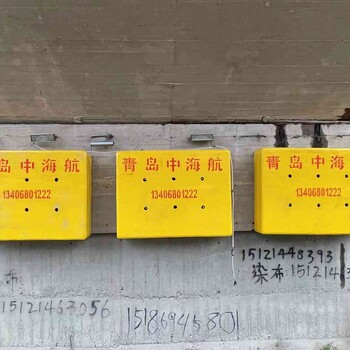 岛中海航
13406801222
青岛中海航
13406801222
青岛中海航
13406801222
15121448393
染布151214
布
15121463056
15186945801